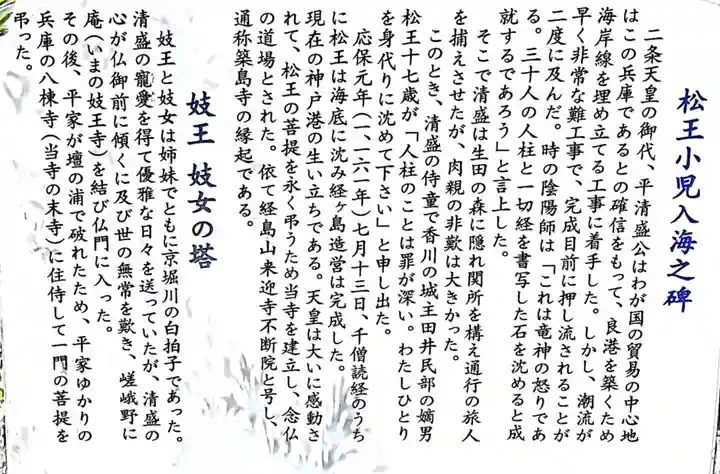 松王小児入海之碑
二条天皇の御代、平清盛公はわが国の貿易の中心地
はこの兵庫であるとの確信をもって、良港を築くため
海岸線を埋め立てる工事に着手した。しかし、潮流が
早く非常な難工事で、完成目前に押し流されることが
二度に及んだ。時の陰陽師は「これは竜神の怒りであ
る。三十人の人柱と一切経を書写した石を沈めると成
就するであろう」と言上した。
そこで清盛は生田の森に隠れ関所を構え通行の旅人
を捕えさせたが、肉親の非歎は大きかった。
このとき、清盛の侍童で香川の城主田井民部の嫡男
松王十七歳が「人柱のことは罪が深い。わたしひとり
を身代りに沈めて下さい」と申し出た。
応保元年(一、一六一年)七月十三日、千僧読経のうち
に松王は海底に沈み経ヶ島造営は完成した。
現在の神戸港の生い立ちである。天皇は大いに感動さ
れて、松王の菩提を永く弔うため当寺を建立し、念仏
の道場とされた。依て経島山来迎寺不断院と号し、
通称築島寺の縁起である。
妓王 妓女の塔
妓王と妓女は姉妹でともに京堀川の白拍子であった。
清盛の寵愛を得て優雅な日々を送っていたが、清盛の
心が仏御前に傾くに及び世の無常を歎き、嵯峨野に
庵(いまの妓王寺)を結び仏門に入った。
その後、平家が壇の浦で破れたため、平家ゆかりの
兵庫の八棟寺(当寺の末寺)に住侍して一門の菩提を
弔った。